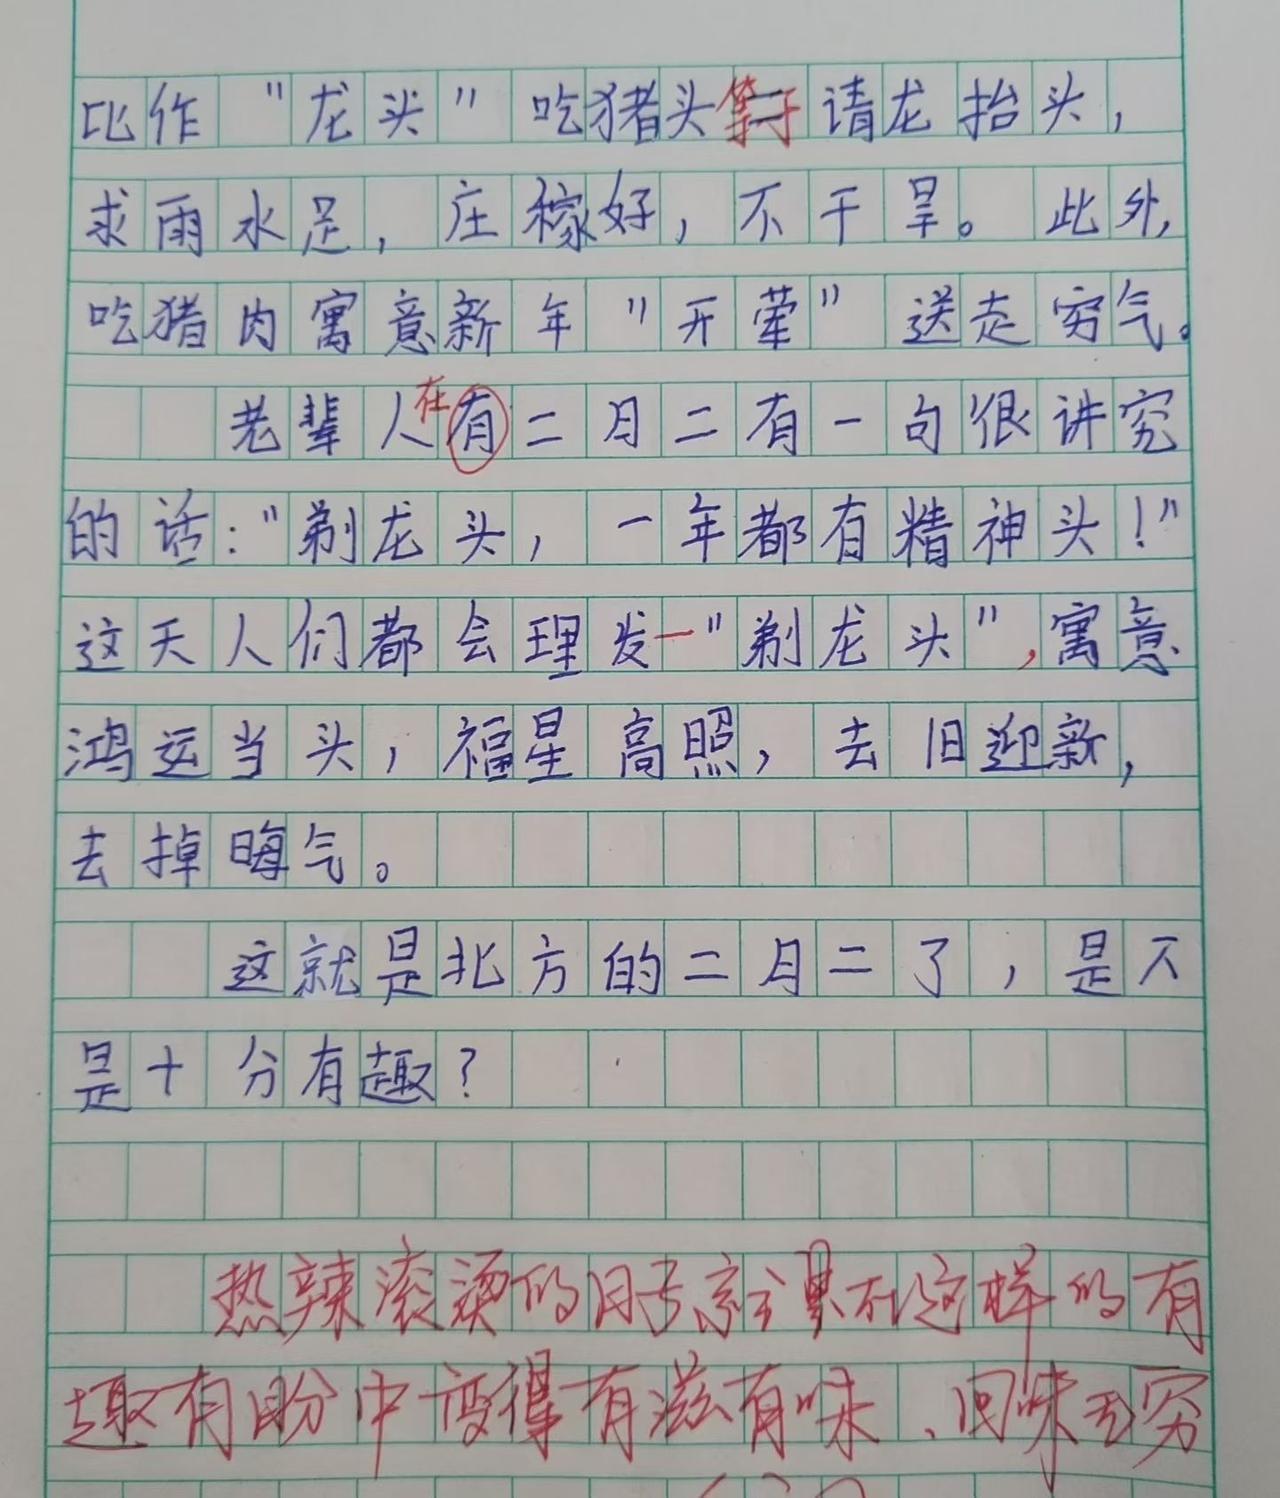 比作"龙头"吃猪头等于请龙抬头，
求雨水足，庄稼好，不干旱。此外，
吃猪肉寓意新年"开荤"送走穷气。
老辈人在有二月二有一句很讲究
的话："剃龙头，一年都有精神头！"
这天人们都会理发一"剃龙头"，寓意
鸿运当头，福星高照，去旧迎新，
去掉晦气。
这就是北方的二月二了，是不
是十分有趣？
热辣滚烫的日子就是在这样的有
趣有盼中变得有滋有味、回味无穷